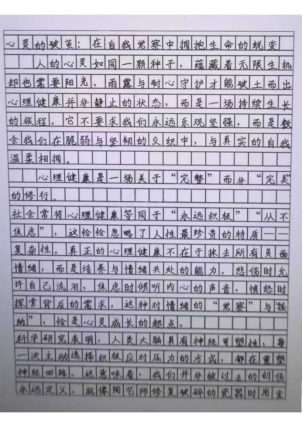 心灵的破茧：在自我觉察中拥抱生命的蜕变
人的心灵如同一颗种子，蕴藏着无限生机
却也需要阳光、雨露与耐心守护才能破土而出
心理健康并非静止的状态，而是一场持续生长
的旅程。它不要求我们永远乐观坚强，而是教
会我们在脆弱与坚韧的交织中，与真实的自我
温柔相拥。
心理健康是一场关于“完整”而非“完美”
的修行。
社会常将心理健康等同于“永远积极”“从不
焦虑”，这恰恰忽略了人性最珍贵的特质——
复杂性。真正的心理健康不在于抹去所有负面
情绪，而是培养与情绪共处的能力。悲伤时允
许自己流泪，焦虑时倾听内心的声音，愤怒时
探索背后的需求，这种对情绪的“觉察”与“接
纳”，恰是心灵成长的起点。
科学研究表明，人类大脑具有神经可塑性，每
一次主动选择积极应对压力的方式，都在重塑
神经回路。这意味着，我们并非被过去的创伤
永远定义，就像陶艺师修复破碎的瓷器时用金